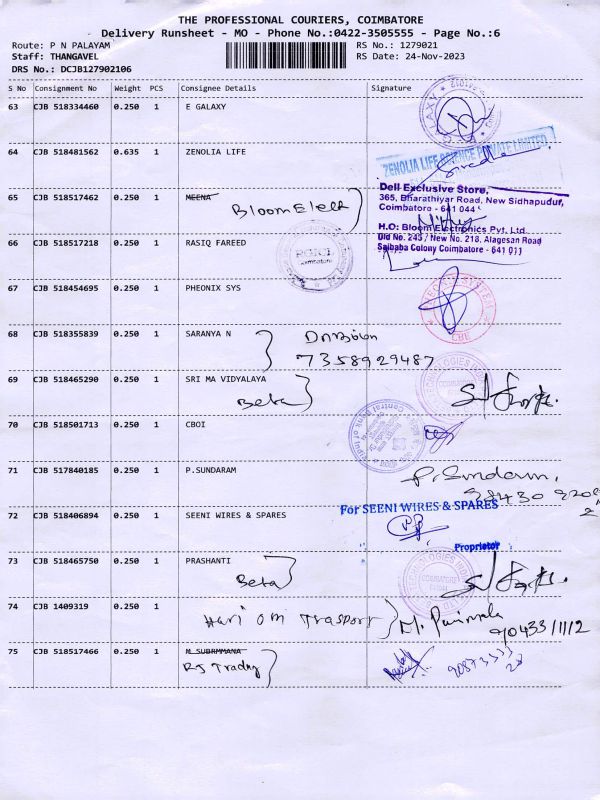 THE PROFESSIONAL COURIERS, COIMBATORE
Delivery Runsheet - MO - Phone No.:0422-3505555 - Page No.:6
Route: P N PALAYAM RS No.: 1279021
Staff: THANGAVEL RS Date: 24-Nov-2023
DRS No.: DCJB127902106
S No Consignment No Weight PCS Consignee Details Signature
63 CJB 518334460 0.250 1 E GALAXY
64 CJB 518481562 0.635 1 ZENOLIA LIFE
ZENOLIA LIFE SCIENCE PRIVATE LIMITED
65 CJB 518517462 0.250 1 MEENA
Bloom Elect
Dell Exclusive Store,
365, Bharathiyar Road, New Sidhapudur,
Coimbatore - 641 044
H.O: Bloom Electronics Pvt. Ltd.
Old No. 245 / New No. 218, Alagesan Road
Saibaba Colony Coimbatore - 641 011
66 CJB 518517218 0.250 1 RASIQ FAREED
67 CJB 518454695 0.250 1 PHEONIX SYS
CBE
68 CJB 518355839 0.250 1 SARANYA N
7358929487
69 CJB 518465290 0.250 1 SRI MA VIDYALAYA
Beta
70 CJB 518501713 0.250 1 CBOI
Central Bank of
71 CJB 517840185 0.250 1 P.SUNDARAM
P. Sundaram,
72 CJB 518406894 0.250 1 SEENI WIRES & SPARES
For SEENI WIRES & SPARES
Proprietor
73 CJB 518465750 0.250 1 PRASHANTI
Beta
74 CJB 1409319 0.250 1
Hari Om Trasport
75 CJB 518517466 0.250 1 M SUBRMMANA
RJ Trading